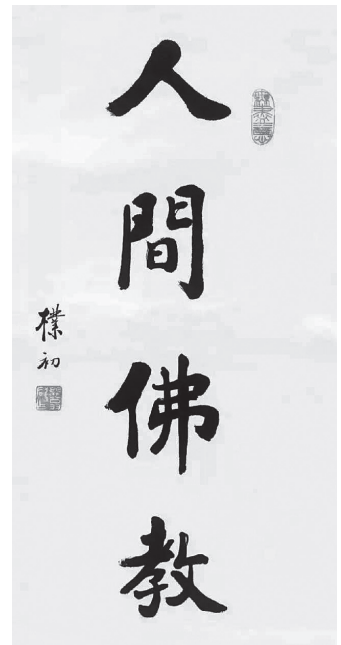 人間佛教
樸初